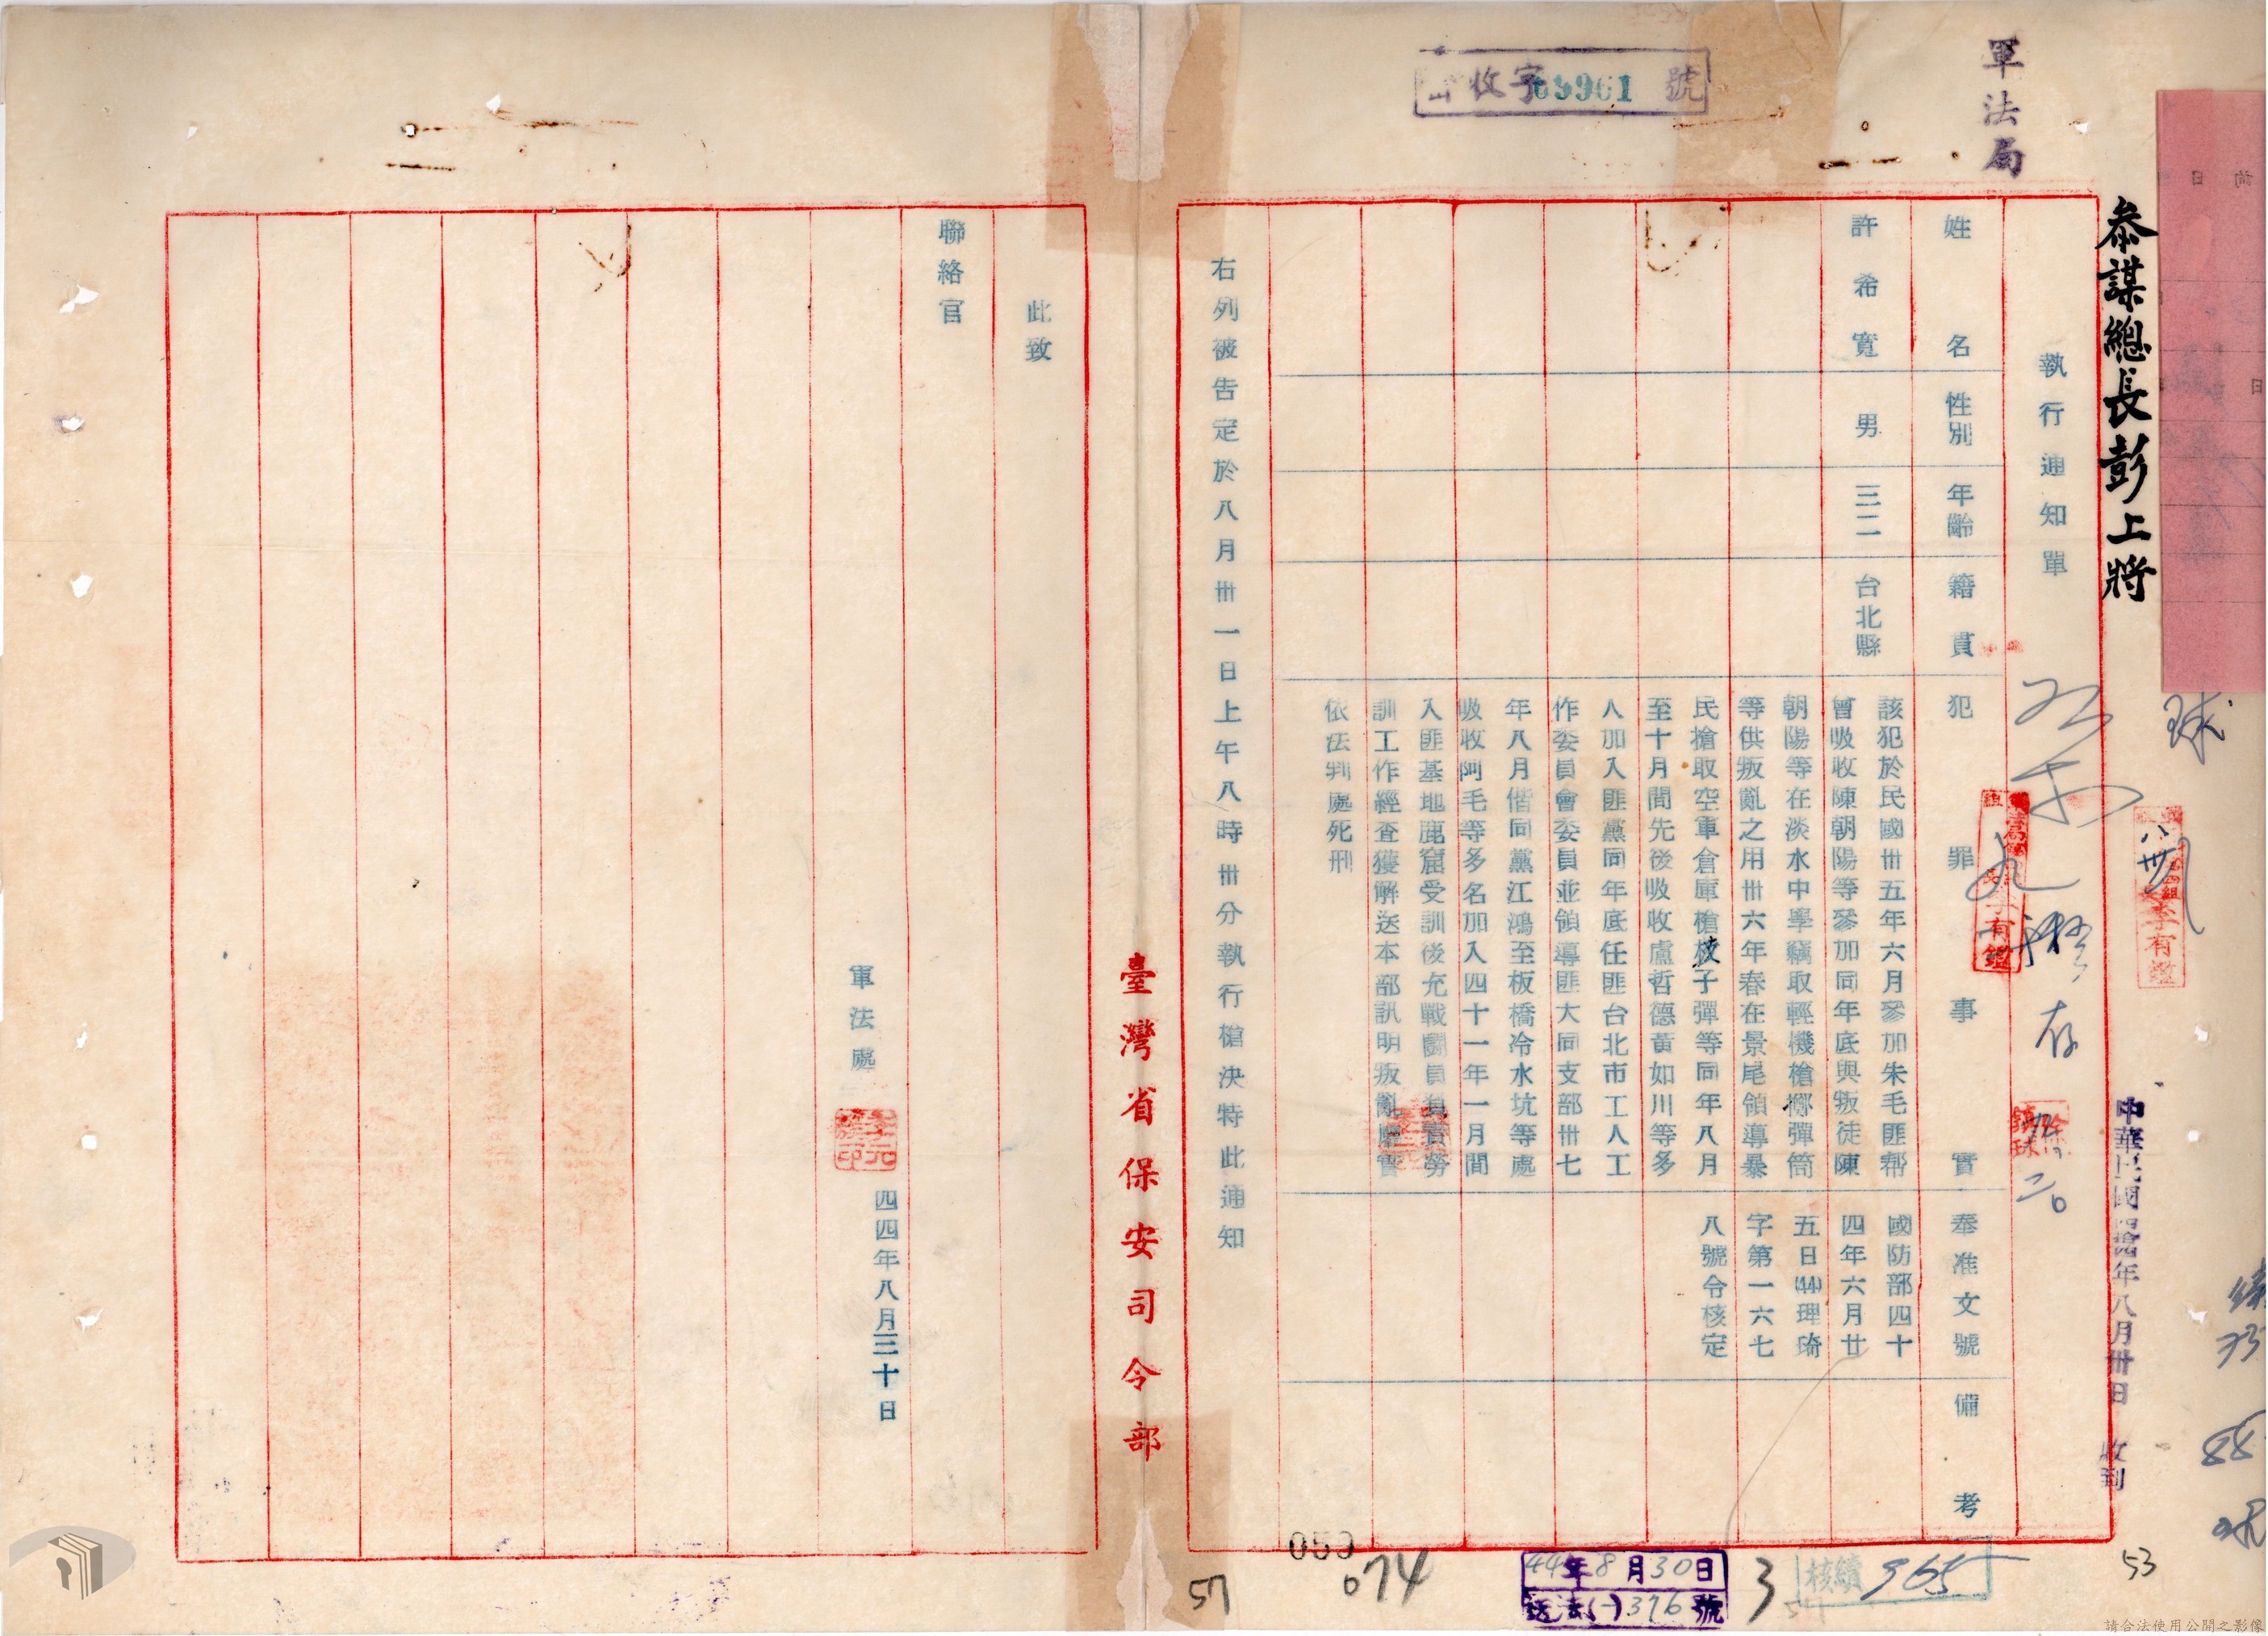 軍法局
收字09961號
參謀總長彭上將
執行通知單
姓名
性別
年齡
籍貫
犯罪事實
奉准文號
備考
許希寬
男
三二
台北縣
該犯於民國卅五年六月參加朱毛匪幫
曾吸收陳朝陽等參加同年底與叛徒陳
朝陽等在淡水中學竊取輕機槍擲彈筒
等供叛亂之用卅六年春在景尾領導暴
民搶取空軍倉庫槍枝子彈等同年八月
至十月間先後吸收盧哲德黃如川等多
人加入匪黨同年底任匪台北市工人工
作委員會委員並領導匪大同支部卅七
年八月偕同黨江鴻至板橋冷水坑等處
吸收阿毛等多名加入四十一年一月間
入匪基地鹿窟受訓後充戰鬪員負責勞
訓工作經查獲解送本部訊明叛亂屬實
依法判處死刑
國防部四十
四年六月廿
五日(44)理琦
字第一六七
八號令核定
右列被告定於八月卅一日上午八時卅分執行槍決特此通知
此致
聯絡官
軍法處
李元簇印
四四年八月三十日
臺灣省保安司令部
中華民國四拾年八月卅日 收到
李有鑑
八卅
李有鑑
存
球
053
074
57
44年8月30日
(一)376號
3
核續 965
53
請合法使用公開之影像